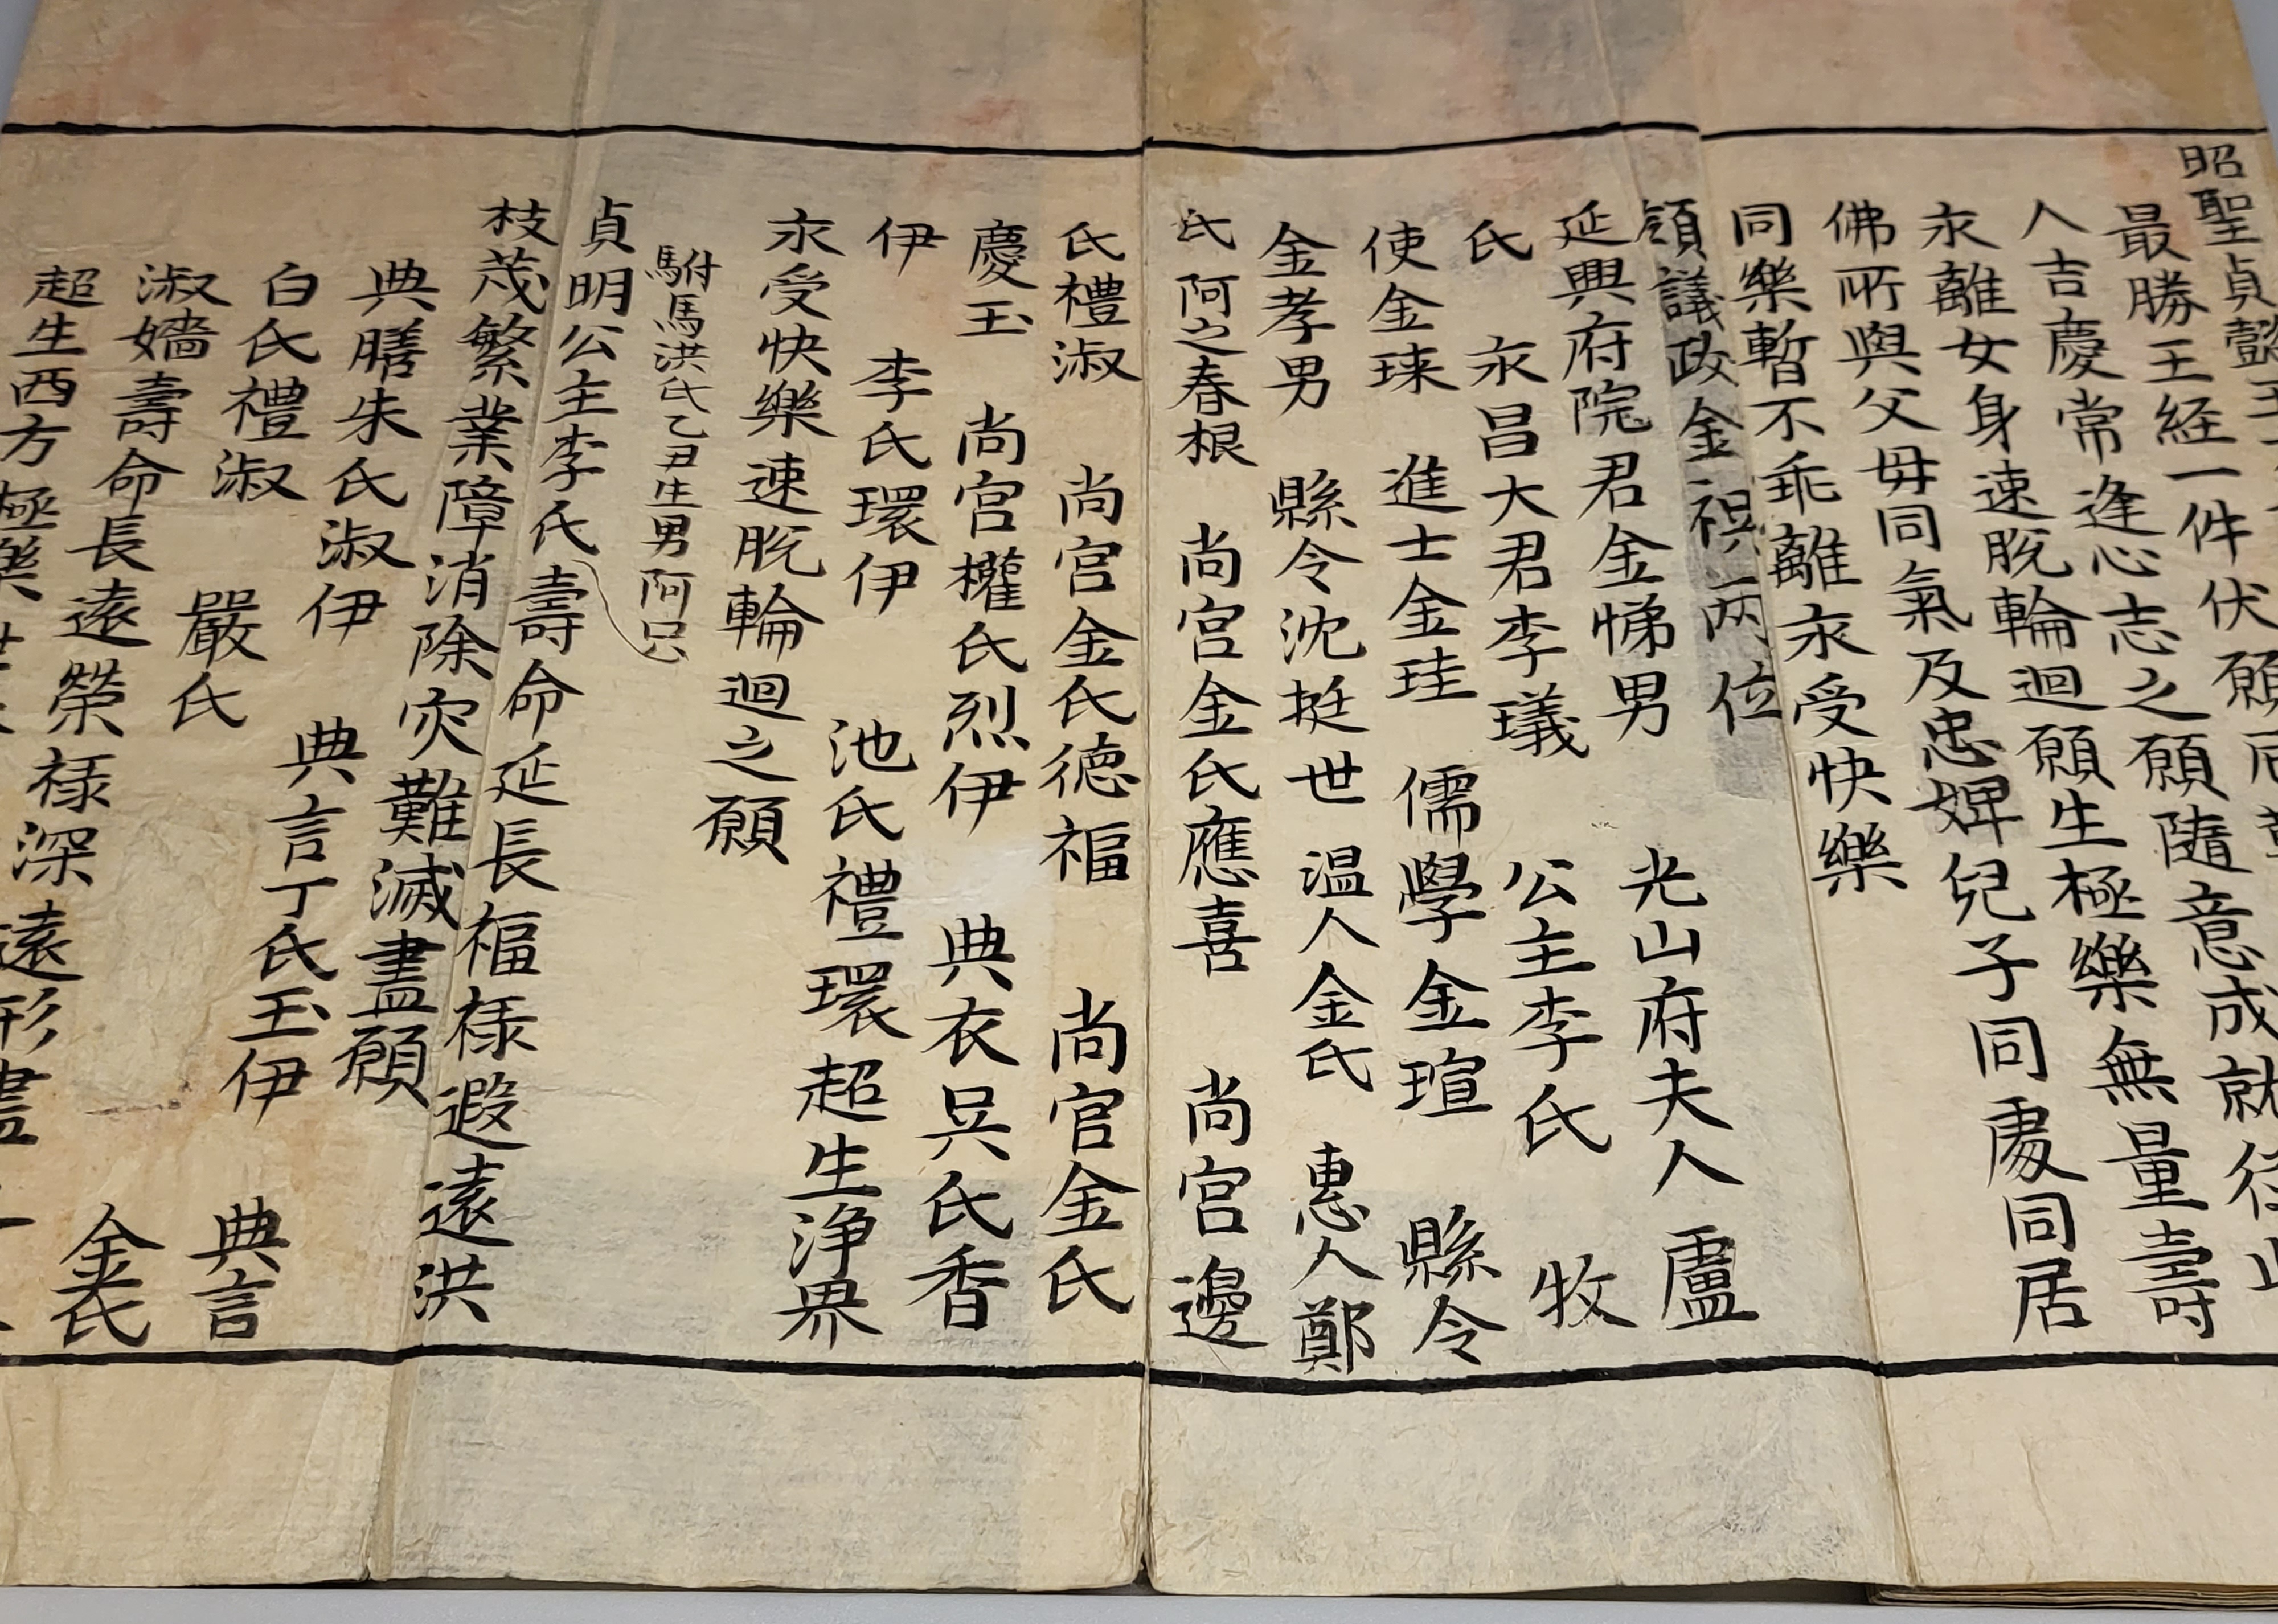 昭聖貞懿王
最勝王経一件伏願
人吉慶常逢心志之願隨意成就
永離女身速脫輪迴願生極樂無量壽
佛所與父母同氣及忠婢兒子同處同居
同樂暫不乖離永受快樂
領議政金祖兩位
延興府院君金悌男 光山府夫人盧
氏 永昌大君李㼁 公主李氏 牧
使金琜 進士金珪 儒學金瑄 縣令
金孝男 縣令沈挺世 温人金氏 惠人鄭
氏 阿之春根 尚宮金氏應喜 尚宮邊
氏禮淑 尚宮金氏德福 尚宮金氏
慶玉 尚宮權氏烈伊 典衣吳氏香
伊 李氏環伊 池氏禮環超生淨界
永受快樂速脫輪迴之願
駙馬洪氏乙丑生男阿只
貞明公主李氏壽命延長福祿遐遠洪
枝茂繁業障消除灾難滅盡願
典膳朱氏淑伊 典言丁氏玉伊 典言
白氏禮淑 嚴氏 金氏
淑嬙壽命長遠榮祿深遠形
超生西方極樂